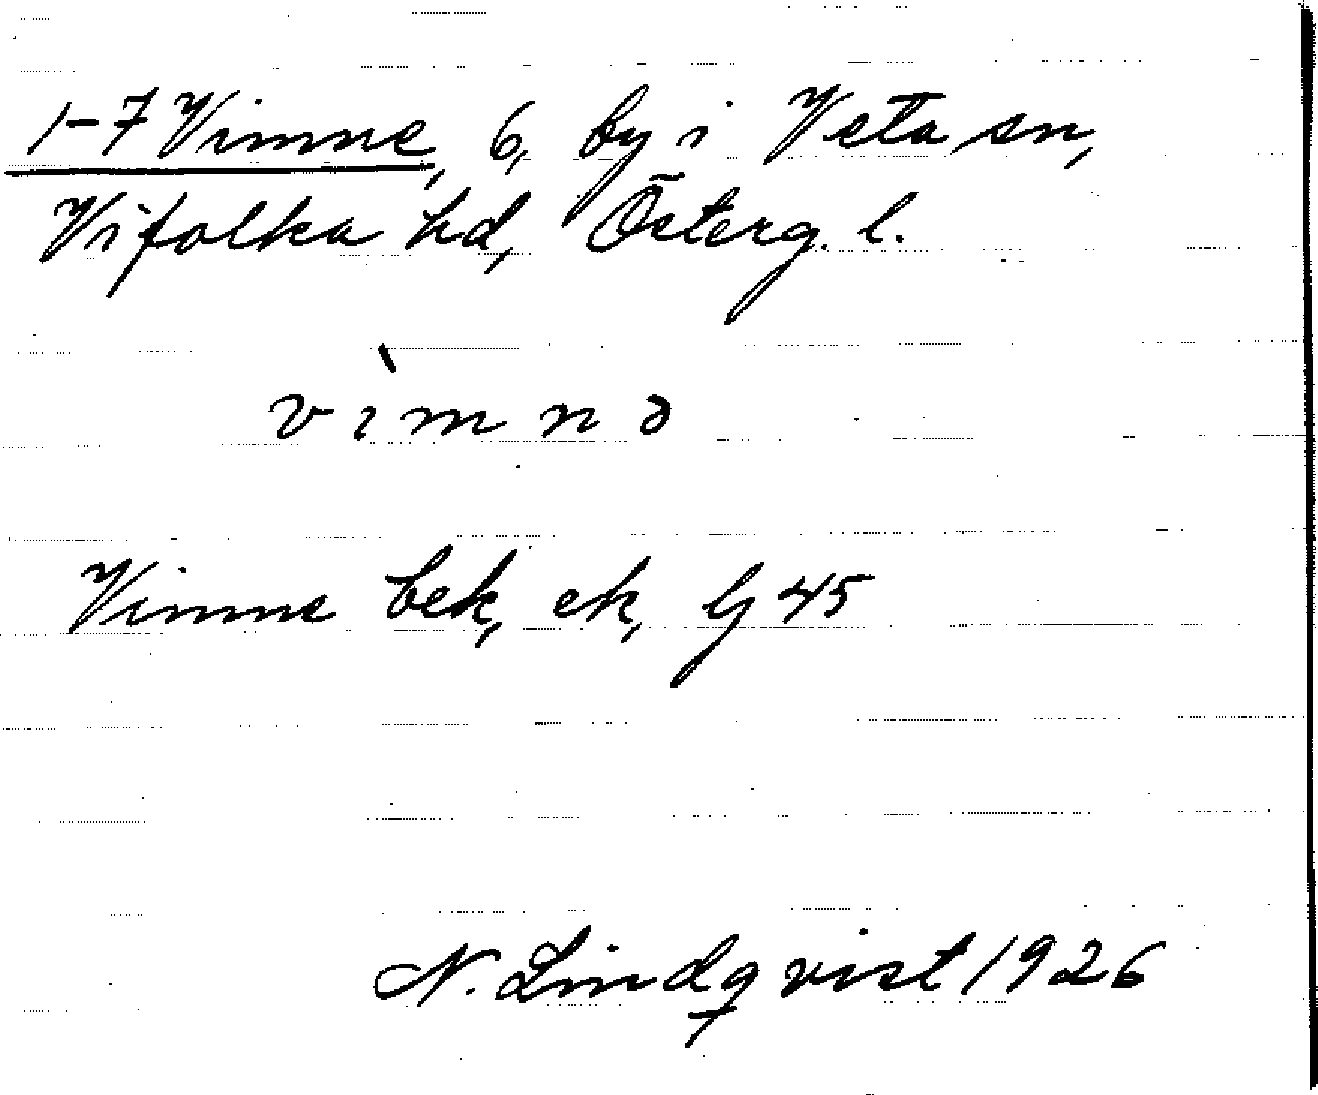 1-7 Vimne, 6, by i Veta sn,
Vifolka hd, Österg. l.
vìmnə
Vimne bek, ek, G 45
N. Lindqvist 1926